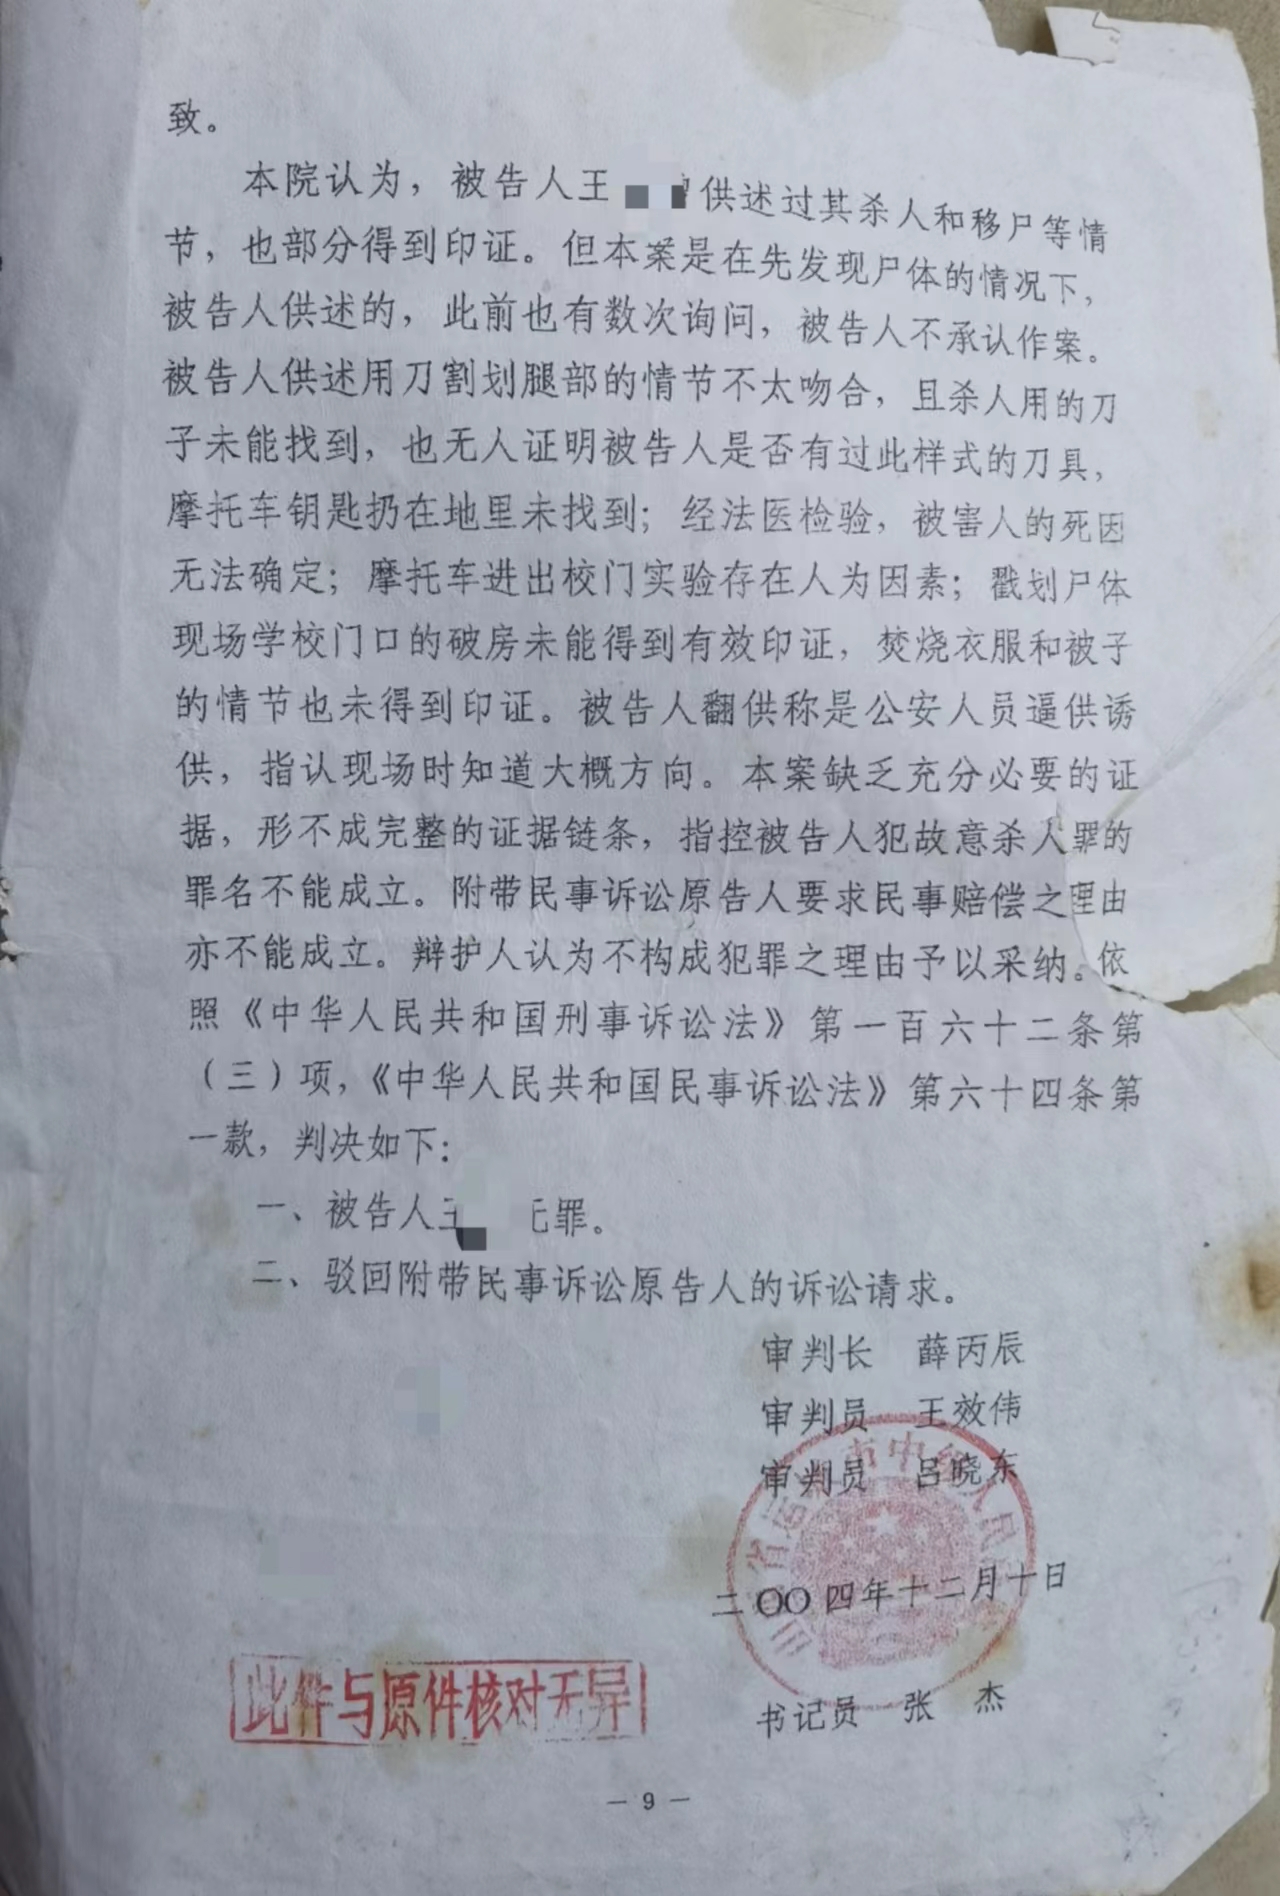 致。
本院认为，被告人王 曾供述过其杀人和移尸等情
节，也部分得到印证。但本案是在先发现尸体的情况下，
被告人供述的，此前也有数次询问，被告人不承认作案。
被告人供述用刀割划腿部的情节不太吻合，且杀人用的刀
子未能找到，也无人证明被告人是否有过此样式的刀具，
摩托车钥匙扔在地里未找到；经法医检验，被害人的死因
无法确定；摩托车进出校门实验存在人为因素；戳划尸体
现场学校门口的破房未能得到有效印证，焚烧衣服和被子
的情节也未得到印证。被告人翻供称是公安人员逼供诱
供，指认现场时知道大概方向。本案缺乏充分必要的证
据，形不成完整的证据链条，指控被告人犯故意杀人罪的
罪名不能成立。附带民事诉讼原告人要求民事赔偿之理由
亦不能成立。辩护人认为不构成犯罪之理由予以采纳。依
照《中华人民共和国刑事诉讼法》第一百六十二条第
（三）项，《中华人民共和国民事诉讼法》第六十四条第
一款，判决如下：
一、被告人王 无罪。
二、驳回附带民事诉讼原告人的诉讼请求。
审判长 薛丙辰
审判员 王效伟
审判员 吕晓东
二〇〇四年十二月十日
此件与原件核对无异
书记员 张 杰
— 9 —